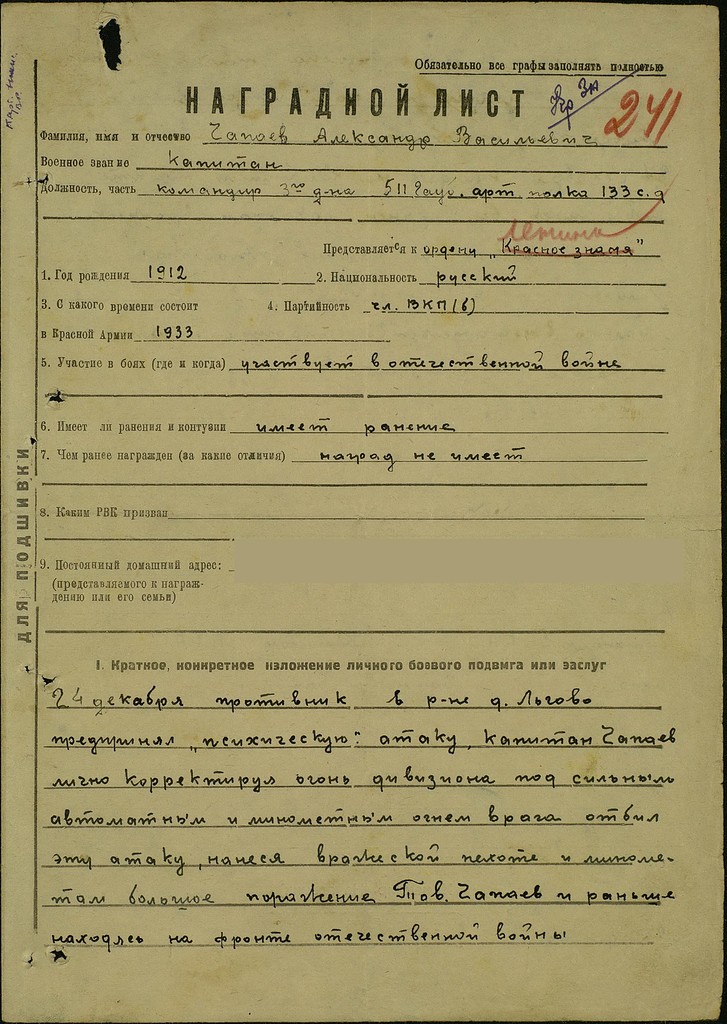 Обязательно все графы заполнять полностью
НАГРАДНОЙ ЛИСТ
241
Фамилия, имя и отчество Чапаев Александр Васильевич
Военное звание Капитан
Должность, часть командир 3го д-на 511 Гауб. арт. полка 133 с.д
Ленина
Представляется к ордену „Красное знамя"
1. Год рождения 1912 2. Национальность русский
3. С какого времени состоит 4. Партийность чл. ВКП(б)
в Красной Армии 1933
5. Участие в боях (где и когда) участвует в отечественной войне
6. Имеет ли ранения и контузии имеет ранение
7. Чем ранее награжден (за какие отличия) наград не имеет
8. Каким РВК призван
9. Постоянный домашний адрес:
(представляемого к награж-
дению или его семьи)
ДЛЯ ПОДШИВКИ
I. Краткое, конкретное изложение личного боевого подвига или заслуг
24 декабря противник в р-не д. Льгово
предпринял „психическую". атаку, капитан Чапаев
лично корректируя огонь дивизиона под сильным
автоматным и минометным огнем врага отбил
эту атаку, нанеся вражеской пехоте и миноме-
там большое поражение Тов. Чапаев и раньше
находясь на фронте отечественной войны